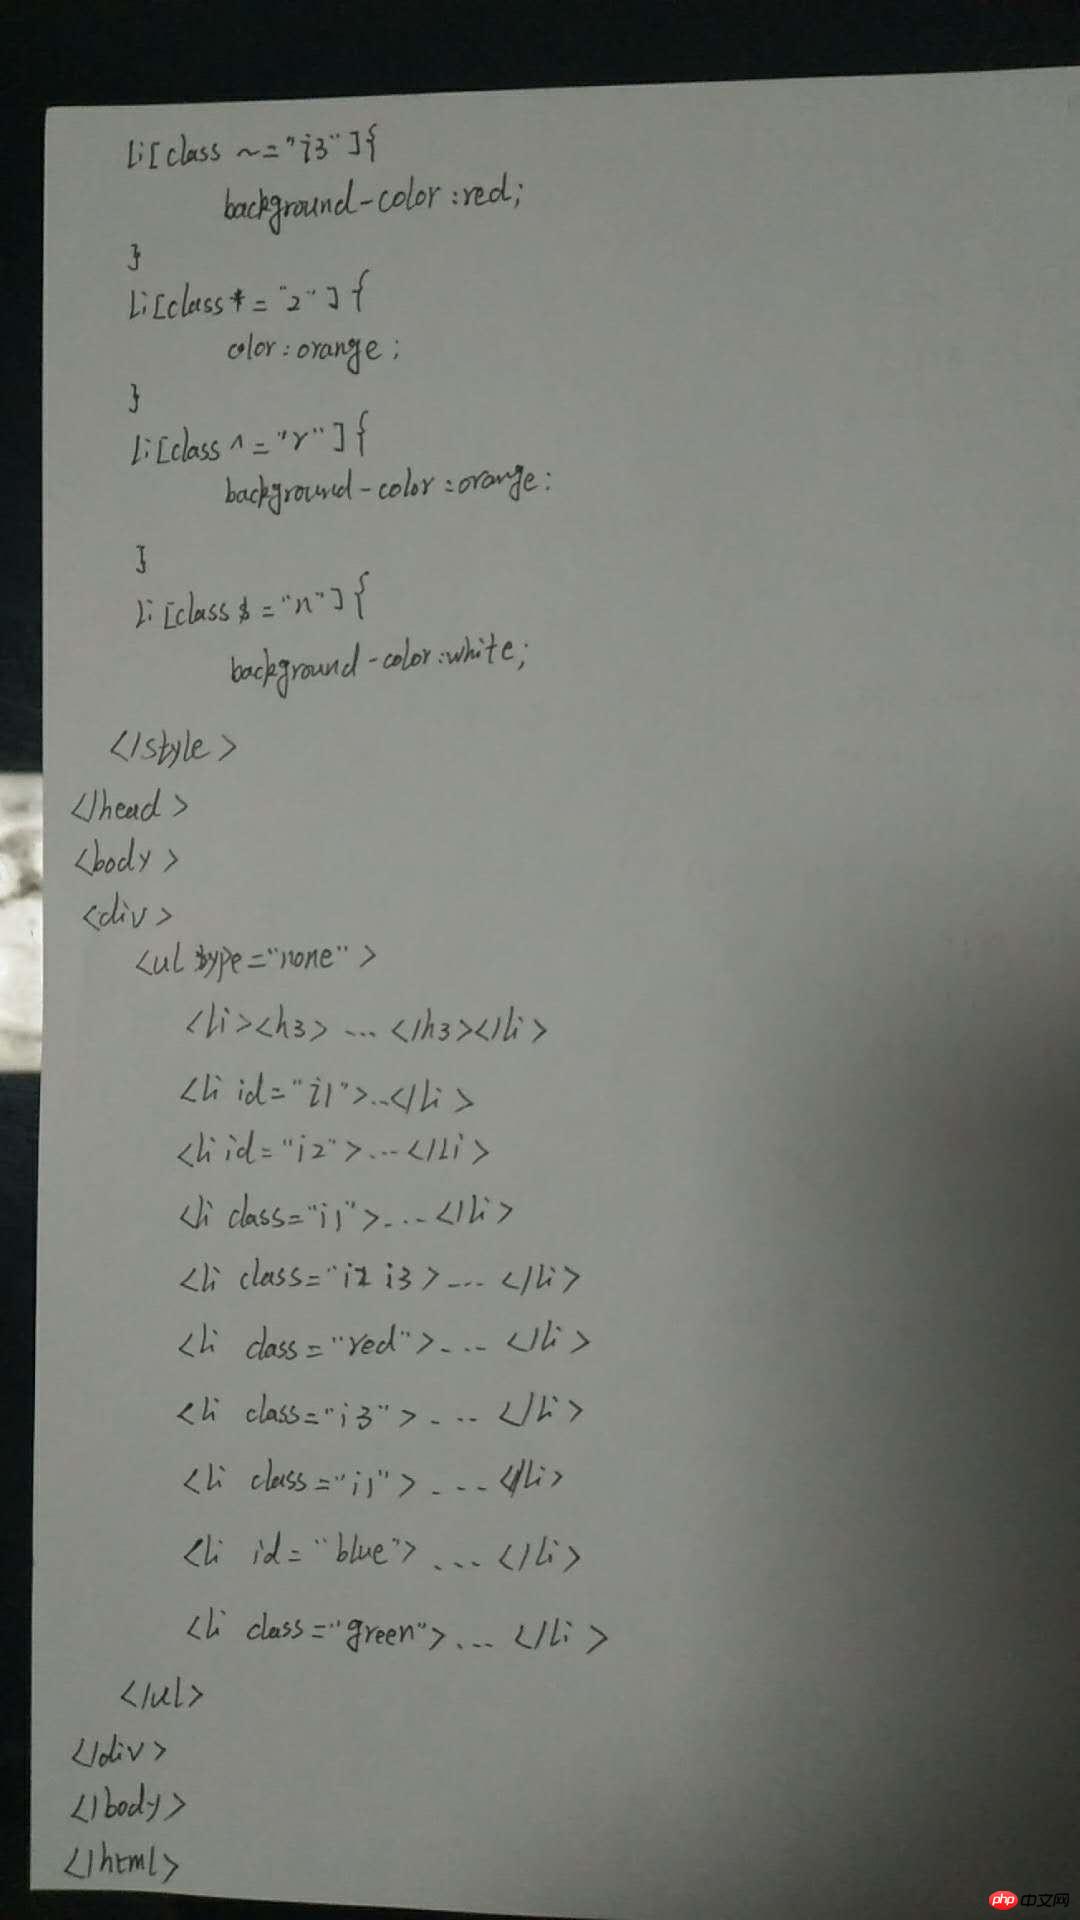 li[class ~="i3"]{
background-color:red;
}
li[class*="2"]{
color:orange;
}
li[class^="r"]{
background-color:orange:
}
li[class$="n"]{
background-color:white;
</style>
</head>
<body>
<div>
<ul type="none">
<li><h3>...</h3></li>
<li id="i1">...</li>
<li id="i2">...</li>
<li class="i1">...</li>
<li class="i2 i3>...</li>
<li class="red">...</li>
<li class="i3">...</li>
<li class="i1">...</li>
<li id="blue">...</li>
<li class="green">...</li>
</ul>
</div>
</body>
</html>
php 中文网